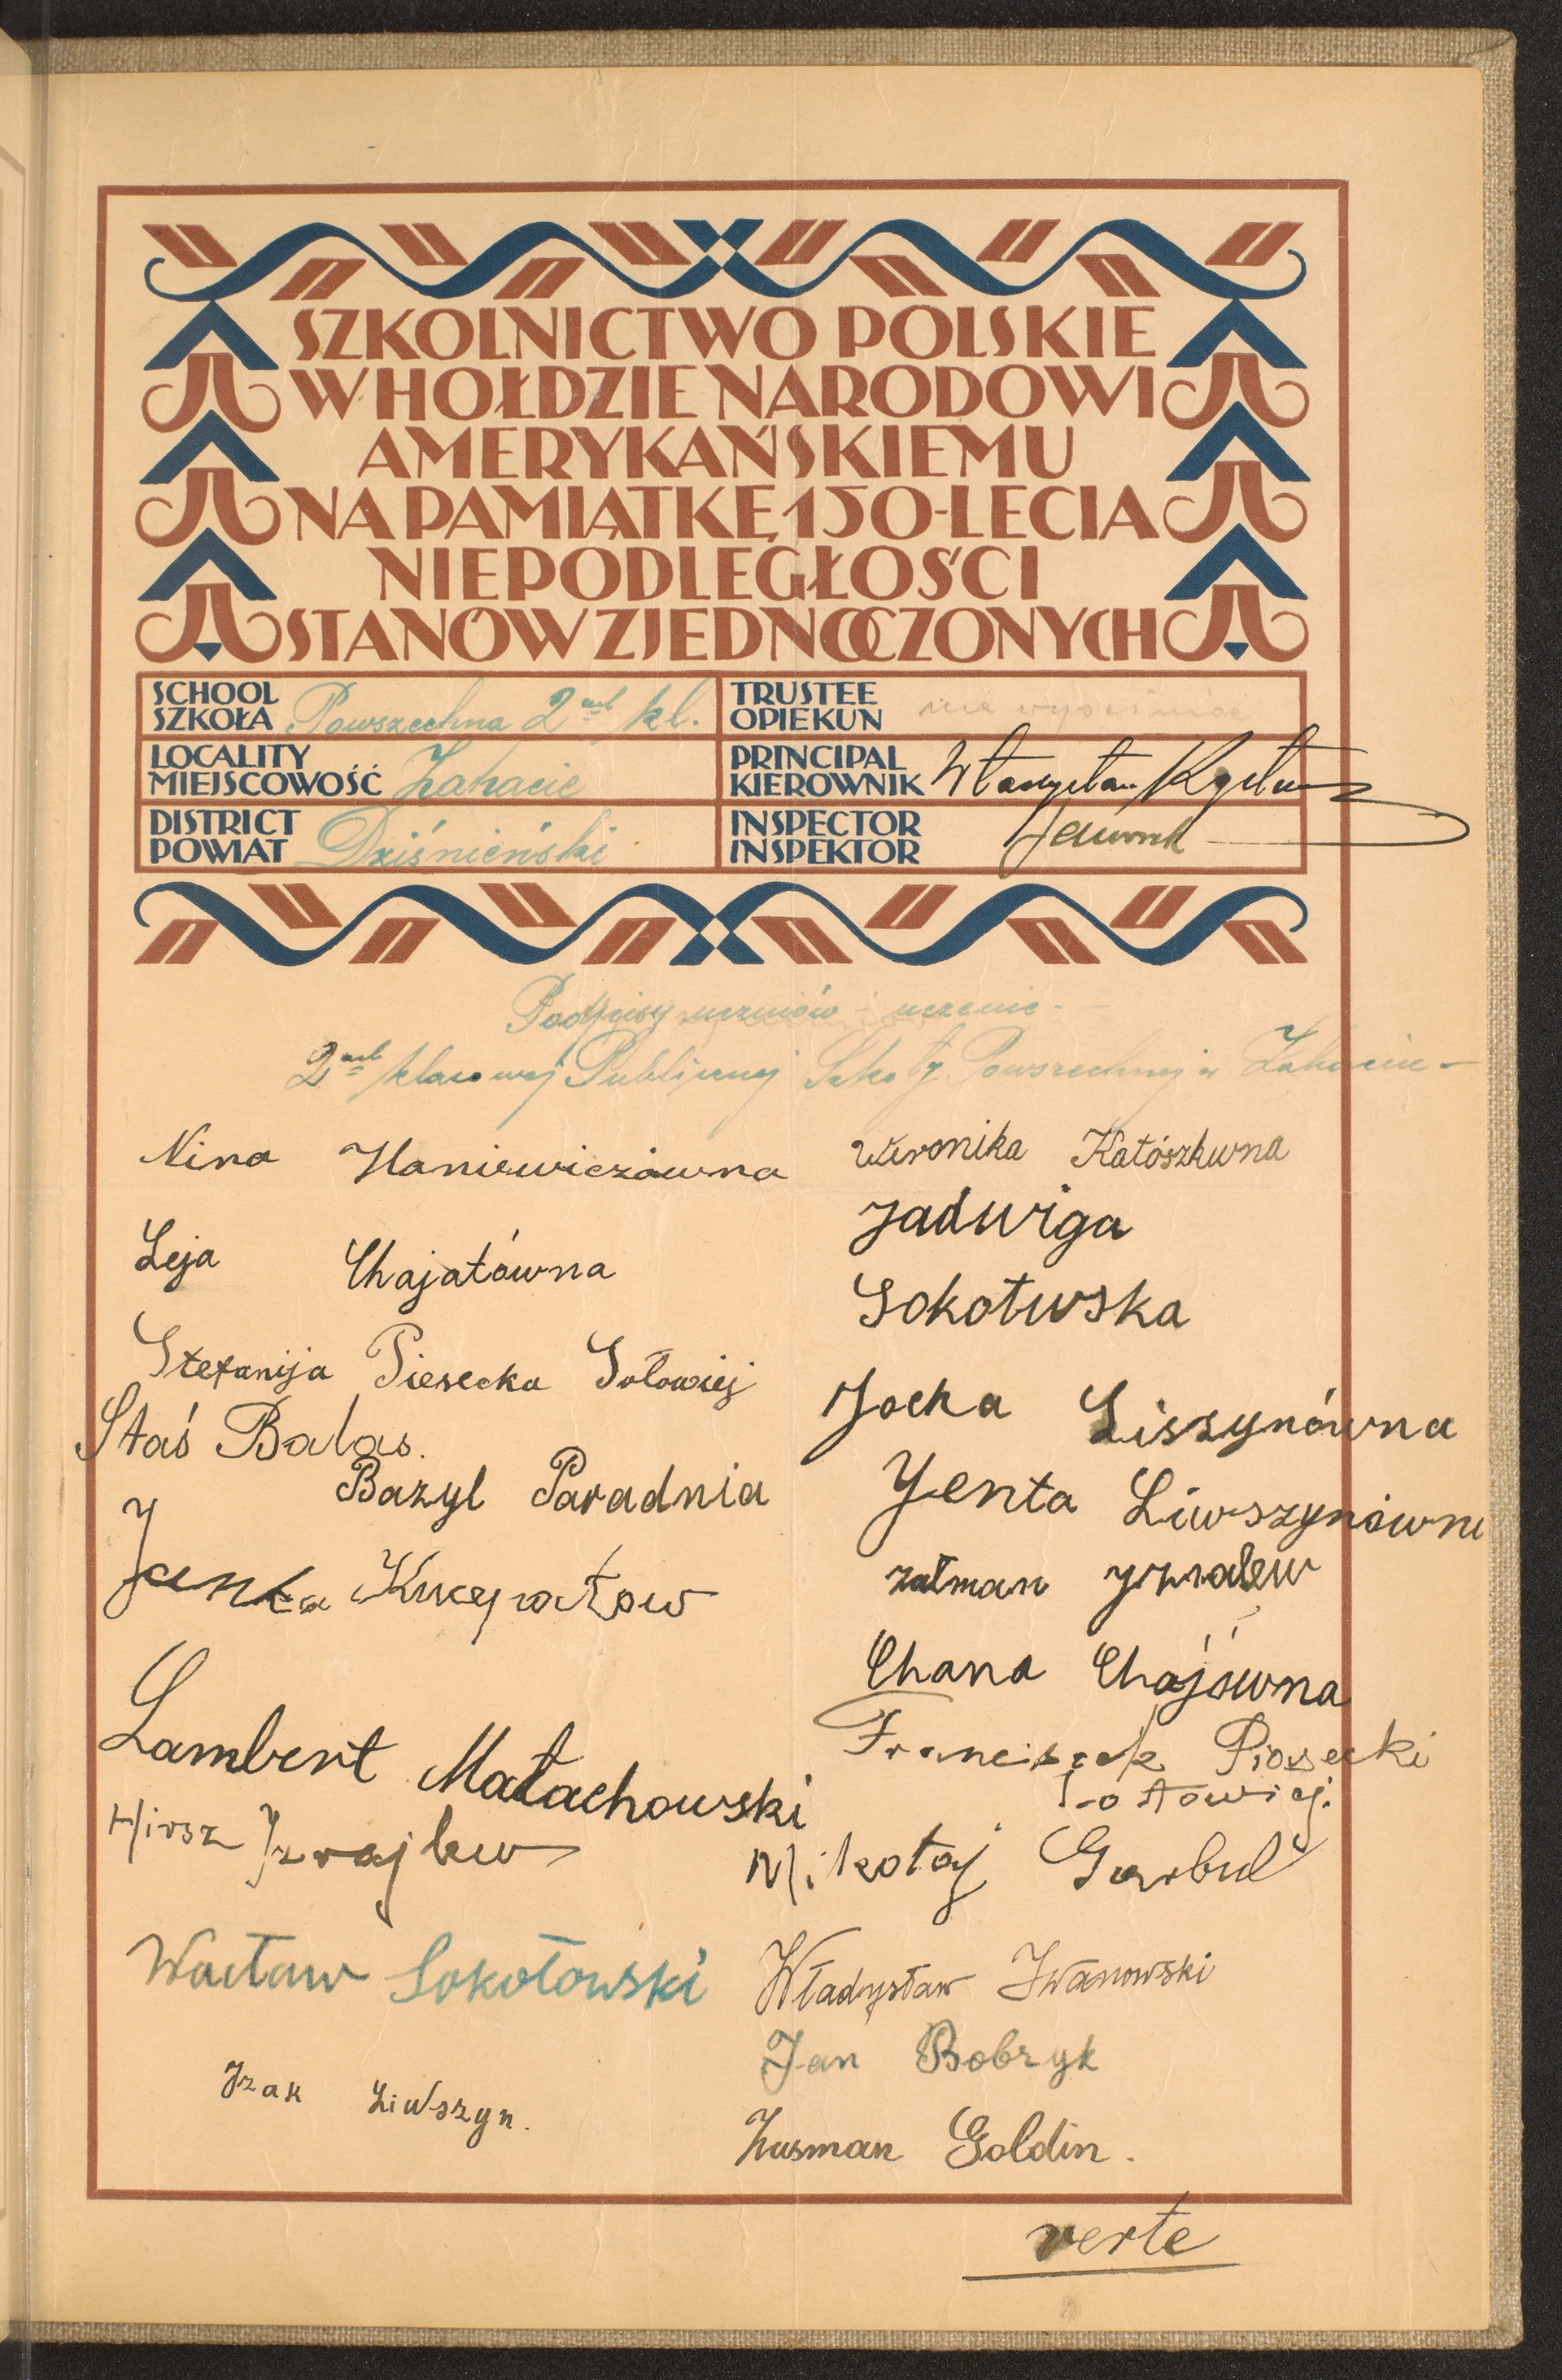 SZKOLNICTWO POLSKIE
W HOŁDZIE NARODOWI
AMERYKAŃSKIEMU
NA PAMIĄTKĘ 150-LECIA
NIEPODLEGŁOŚCI
STANÓW ZJEDNOCZONYCH
SCHOOL
SZKOŁA Powszechna 2 kl.
TRUSTEE
OPIEKUN
LOCALITY
MIEJSCOWOŚĆ Zahacie
PRINCIPAL
KIEROWNIK
DISTRICT
POWIAT Dziśnieński
INSPECTOR
INSPEKTOR
Podpisy uczniów i uczenic
2 klasowej Publicznej Szkoły Powszechnej w Zahaciu
Nina Haniewiczówna
Leja Chajatówna
Stefanija Piesecka Sołowiej
Staś Balas.
Bazyl Paradnia
Lambert Małachowski
Hirsz Jzrajlew
Wacław Sokołowski
Jzak Liwszyn.
Weronika Katószkwna
Jadwiga
Sokołwska
Jocha Liszynówna
Jenta Liwszynówn
załman jzralew
Chana Chajówna
Franciszek Piosecki
Mikołaj Garbul
Władysław Iwanowski
Jan Bobryk
Zusman Goldin.
verte